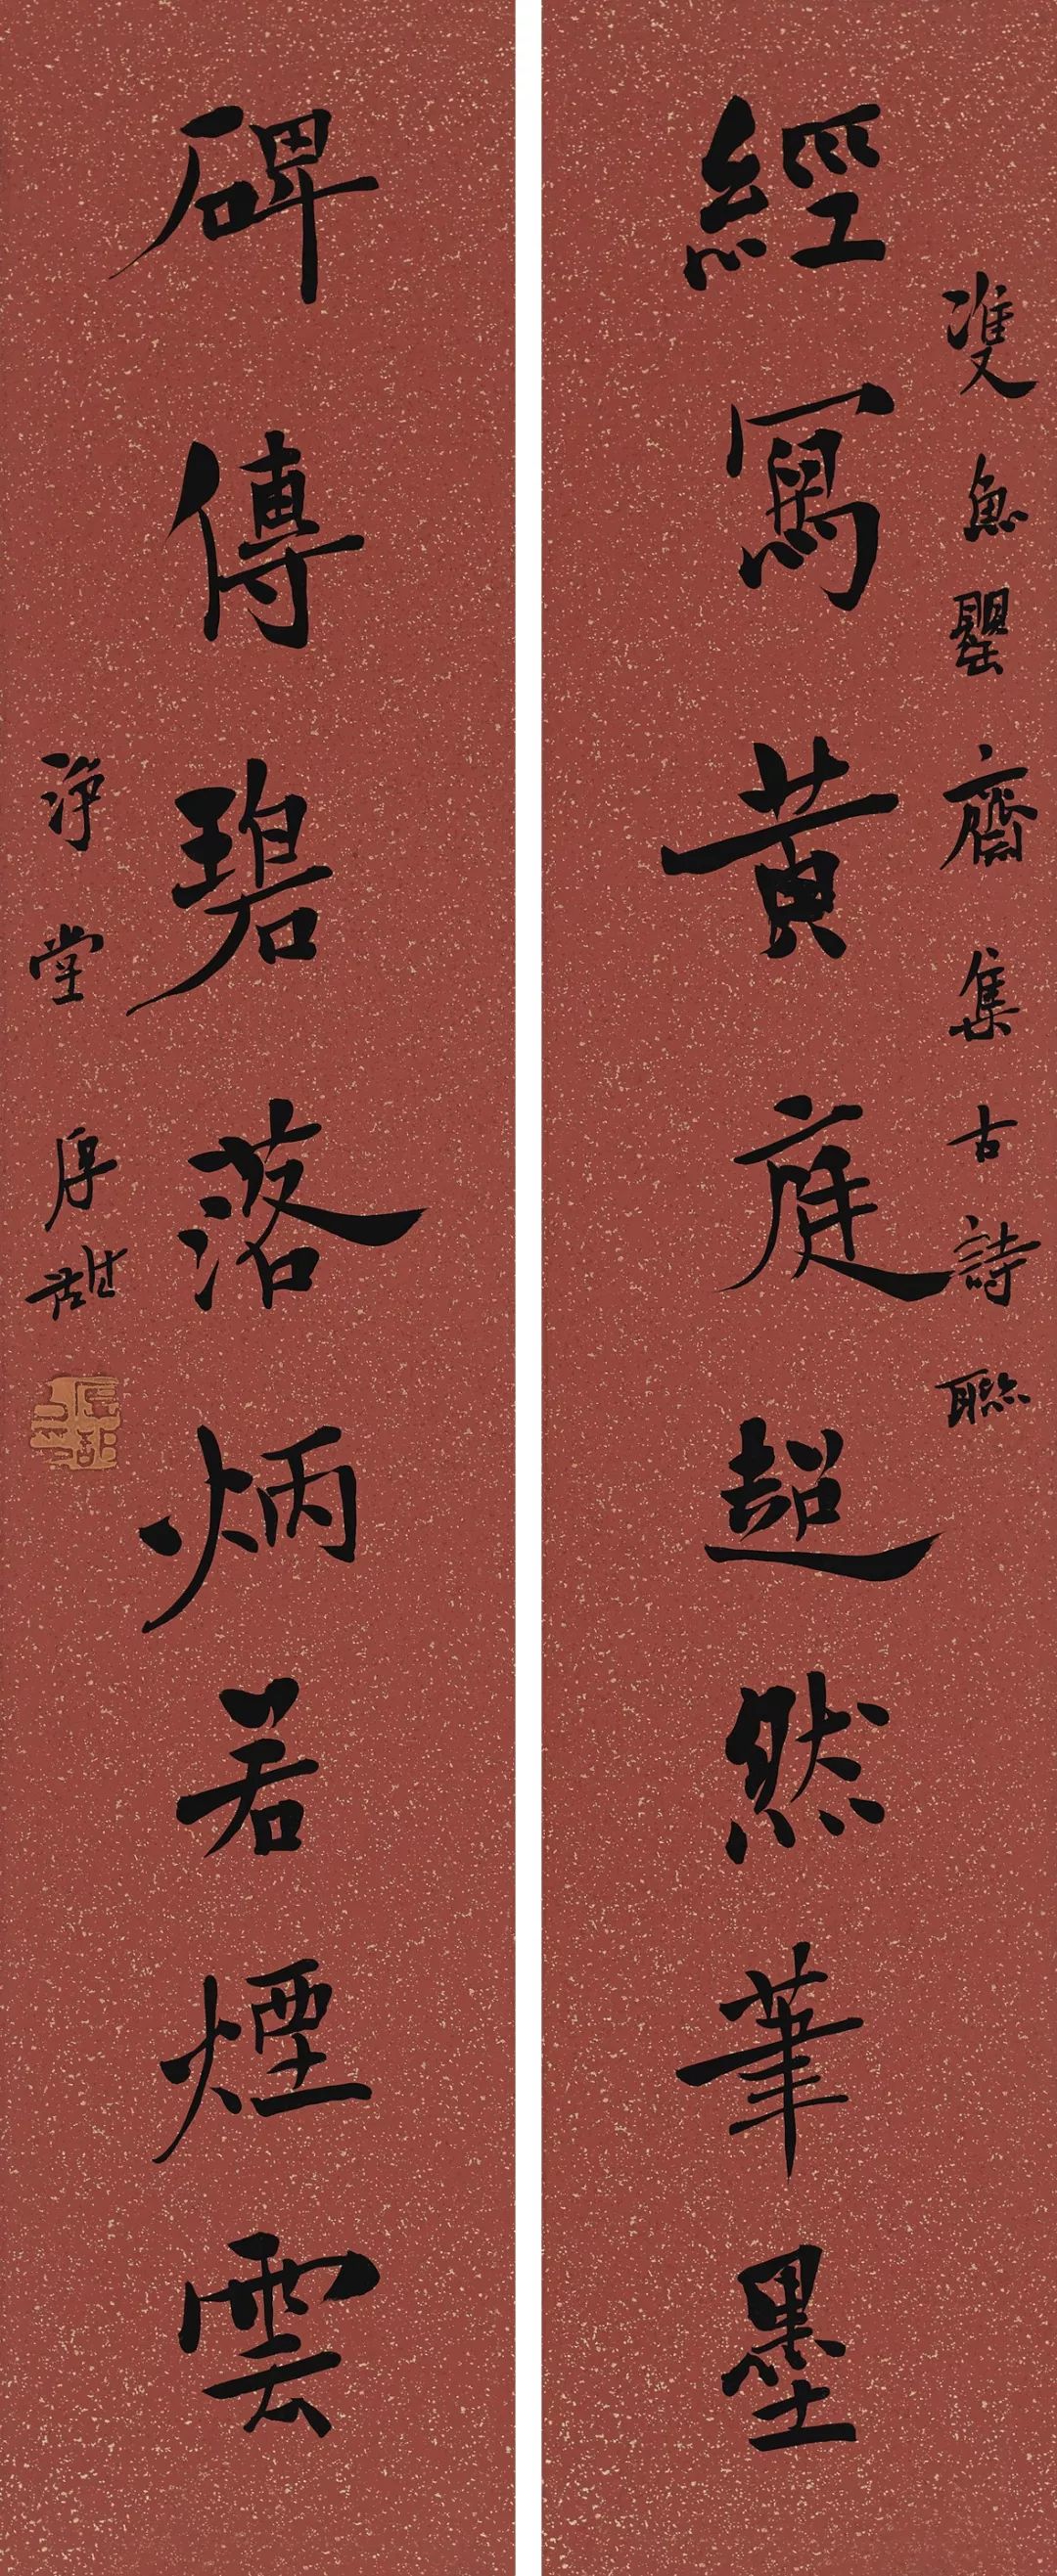 雙魚罌齋集古詩聯
經寫黃庭超然筆墨
碑傳碧落炳若煙雲
淨堂厚甜